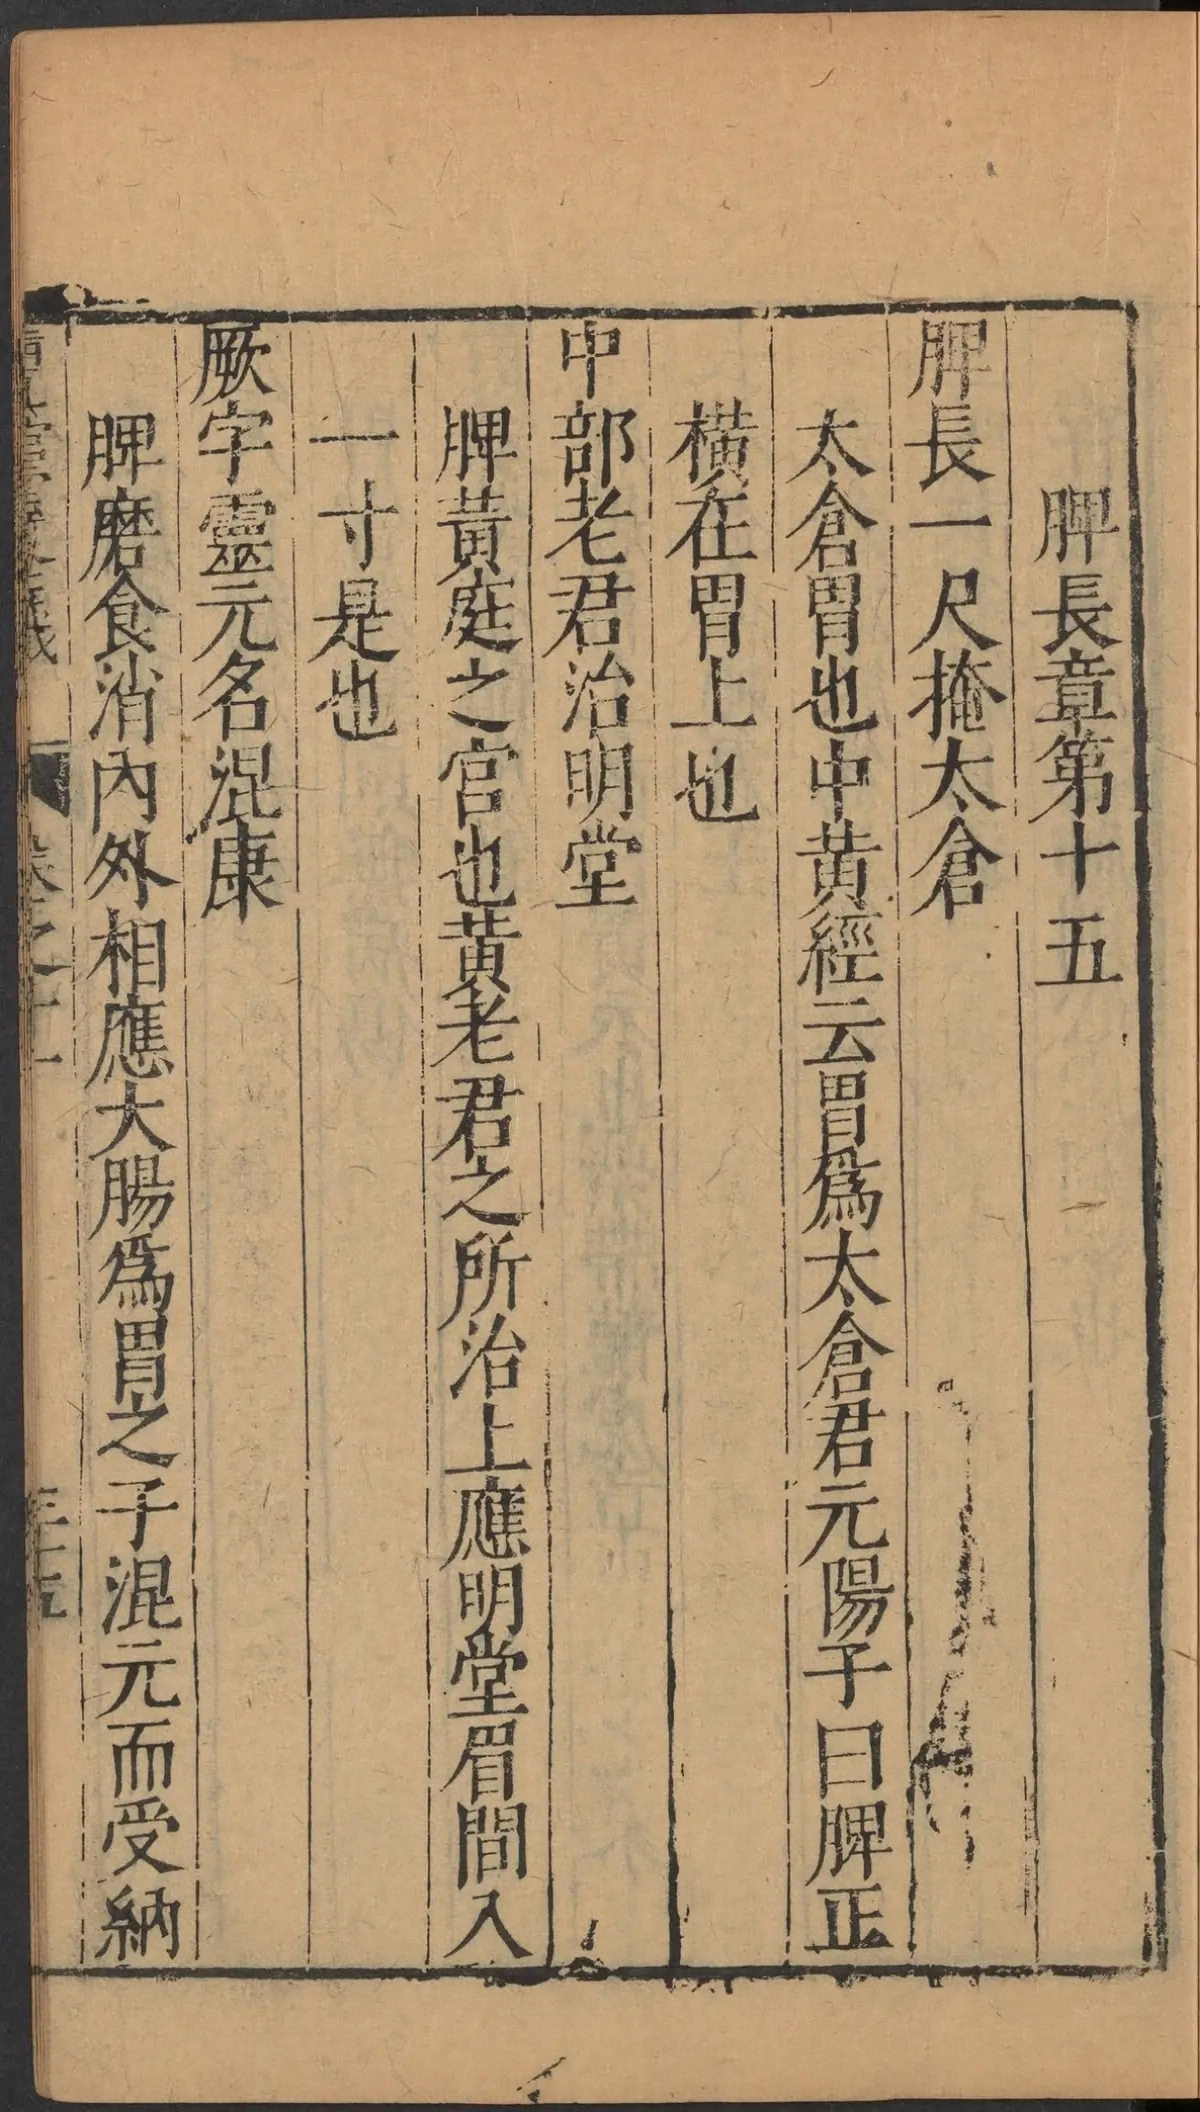 脾長章第十五
脾長一尺掩太倉
太倉胃也中黄經云胃爲太倉君元陽子曰脾正
橫在胃上也
中部老君治明堂
脾黄庭之官也黄老君之所治上應明堂眉間入
一寸是也
厥字靈元名混康
脾磨食消內外相應大腸爲胃之子混元而受納
卷之十一
三十五